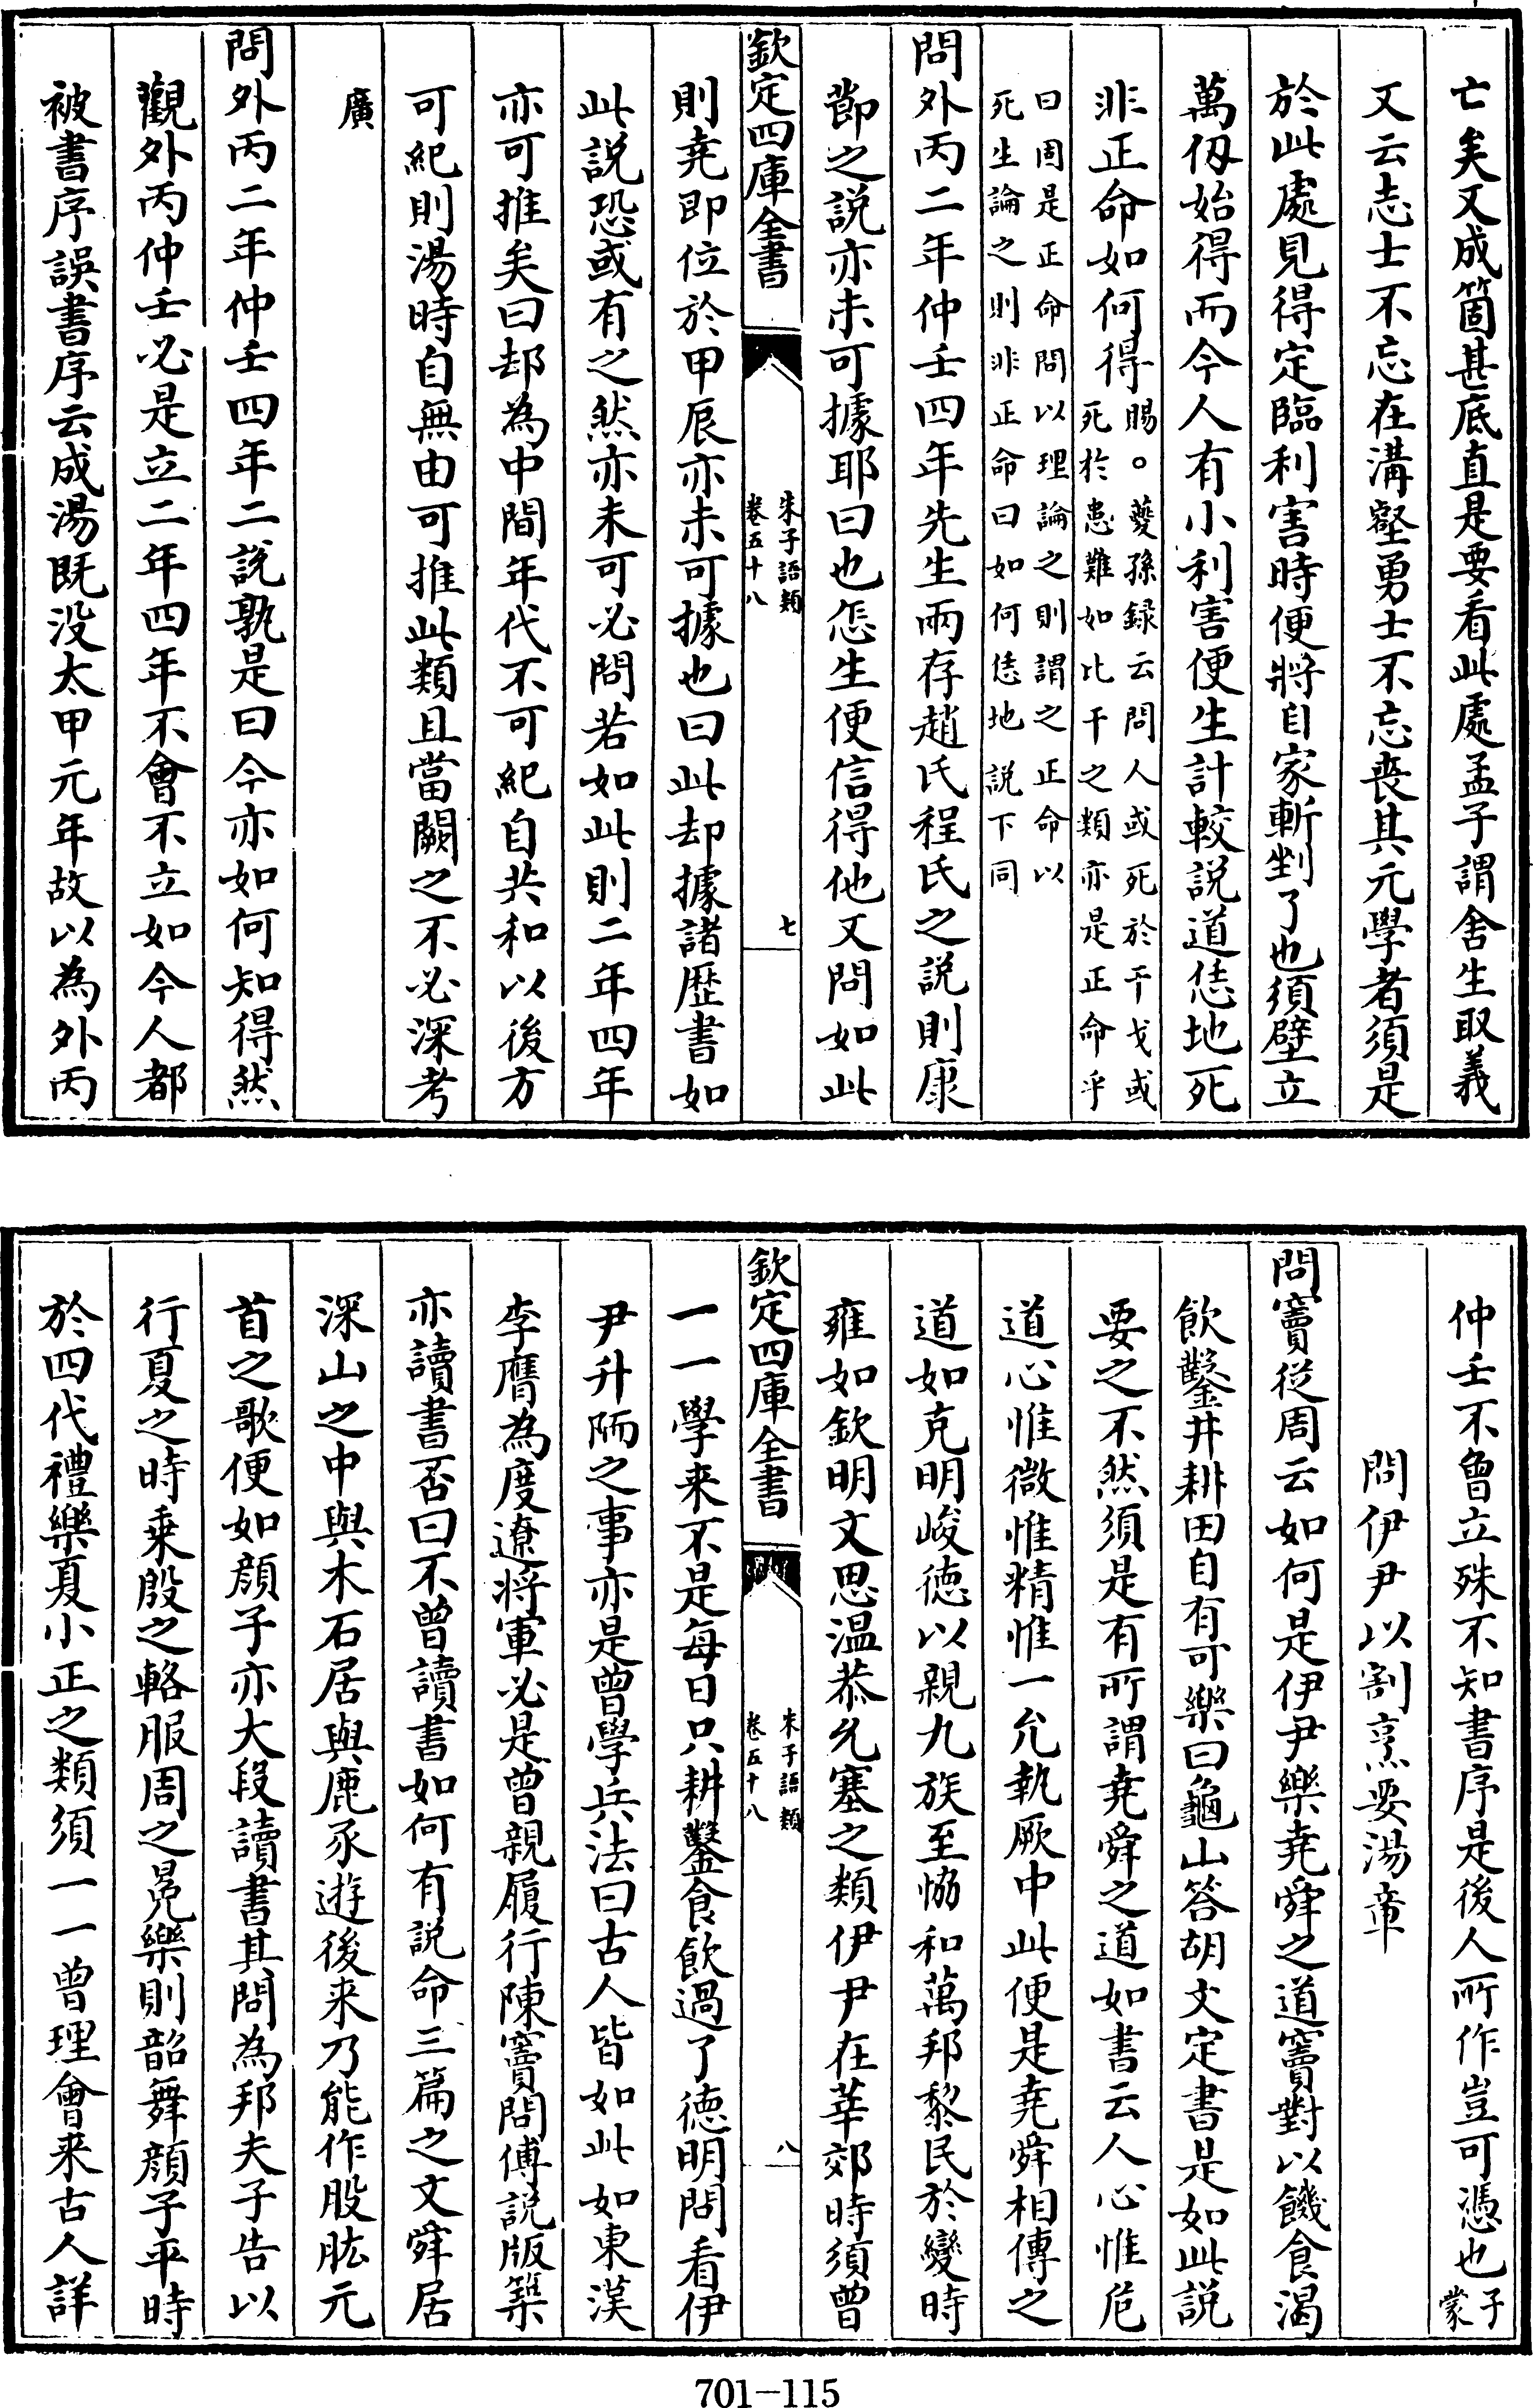 亡矣又成箇甚底直是要看此處孟子謂舍生取義
又云志士不忘在溝壑勇士不忘喪其元學者須是
於此處見得定臨利害時便將自家斬剉了也須壁立
萬仭始得而今人有小利害便生計較說道恁地死
非正命如何得賜。夔孫録云問人或死於干戈或
死於患難如比干之類亦是正命乎
曰固是正命問以理論之則謂之正命以
死生論之則非正命曰如何恁地説下同
問外丙二年仲壬四年先生兩存趙氏程氏之說則康
節之說亦未可據耶曰也怎生便信得他又問如此
欽定四庫全書
朱子語類
卷五十八
七
則堯即位於甲辰亦未可據也曰此却據諸歷書如
此說恐或有之然亦未可必問若如此則二年四年
亦可推矣曰却為中間年代不可紀自共和以後方
可紀則湯時自無由可推此類且當闕之不必深考
廣
問外丙二年仲壬四年二說孰是曰今亦如何知得然
觀外丙仲壬必是立二年四年不會不立如今人都
被書序誤書序云成湯既没太甲元年故以為外丙
仲壬不曾立殊不知書序是後人所作豈可憑也子
蒙
問伊尹以割烹要湯章
問竇從周云如何是伊尹樂堯舜之道竇對以饑食渴
飲鑿井耕田自有可樂曰龜山答胡文定書是如此說
要之不然須是有所謂堯舜之道如書云人心惟危
道心惟微惟精惟一允執厥中此便是堯舜相傳之
道如克明峻德以親九族至恊和萬邦黎民於變時
雍如欽明文思溫恭允塞之類伊尹在莘郊時須曾
欽定四庫全書
朱子語類
卷五十八
八
一一學来不是每日只耕鑿食飲過了德明問看伊
尹升陑之事亦是曾學兵法曰古人皆如此如東漢
李膺為度遼將軍必是曾親履行陳竇問傅說版築
亦讀書否曰不曾讀書如何有說命三篇之文舜居
深山之中與木石居與鹿豕遊後来乃能作股肱元
首之歌便如顔子亦大段讀書其問為邦夫子告以
行夏之時乗殷之輅服周之冕樂則韶舞顔子平時
於四代禮樂夏小正之類須一一曾理會来古人詳
701-115